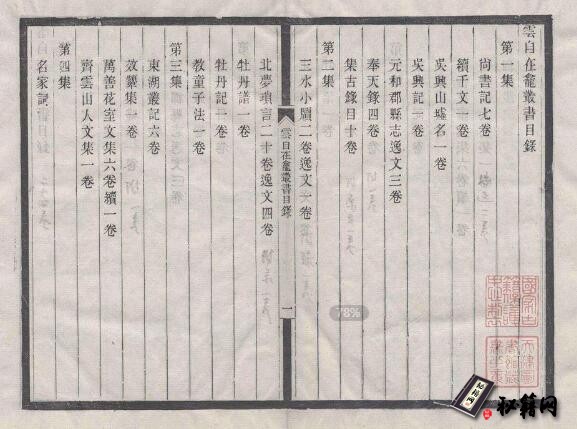 雲自在龕叢書目錄
第一集
尙書記七卷
續千文一卷
吳興山墟名一卷
吳興記一卷
元和郡縣志逸文三卷
奉天錄四卷
集古錄目十卷
第二集
三水小牘二卷逸文一卷
雲自在龕叢書目錄
一
北夢瑣言二十卷逸文四卷
牡丹譜一卷
牡丹記一卷
敎童子法一卷
第三集
東湖叢記六卷
效顰集一卷
萬善花室文集六卷續一卷
齊雲山人文集一卷
第四集
名家詞
78%
秘籍网